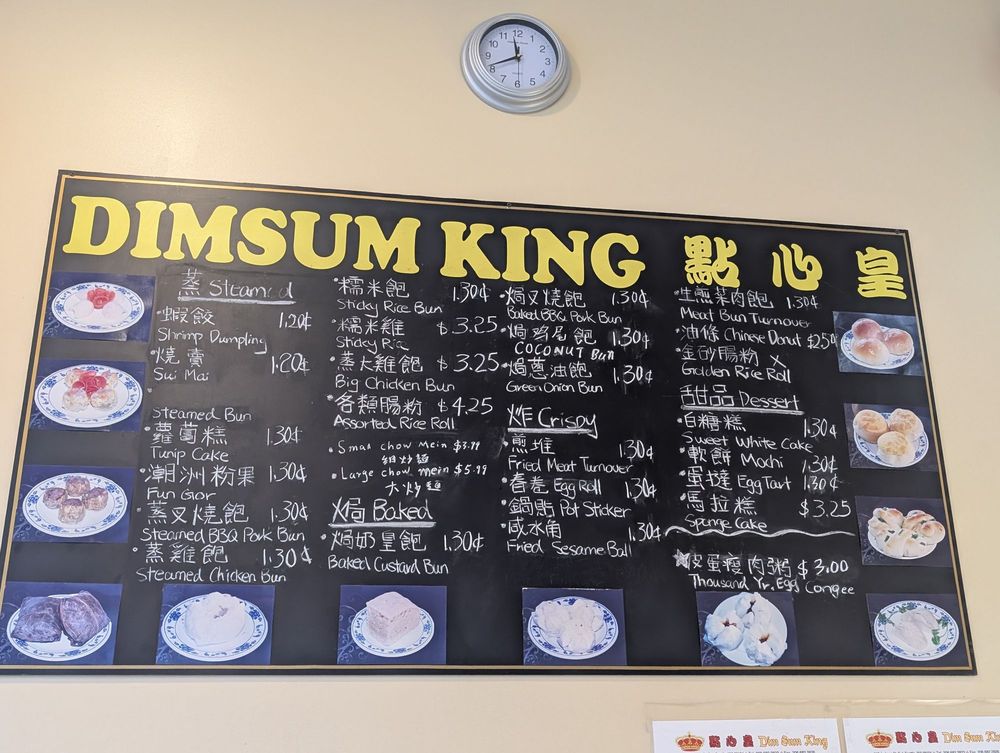 DIMSUM KING 點心皇
蒸 Steamed
蝦餃 1.20¢
Shrimp Dumpling
燒賣 1.20¢
Sui Mai
Steamed Bun
蘿蔔糕 1.30¢
Tunip Cake
潮洲粉果 1.30¢
Fun Gor
蒸叉燒飽 1.30¢
Steamed BBQ Pork Bun
蒸雞飽 1.30¢
Steamed Chicken Bun
糯米飽 1.30¢
Sticky Rice Bun
糯米雞 $3.25
Sticky Ric
蒸大雞飽 $3.25
Big Chicken Bun
各類腸粉 $4.25
Assorted Rice Roll
Small chow mein $3.99
細炒麵
Large chow mein $5.99
大炒麵
焗 Baked
焗奶皇飽 1.30¢
Baked Custard Bun
焗叉燒飽 1.30¢
Baked BBQ Pork Bun
焗鸡尾飽 1.30¢
COCONUT Bun
焗蔥油飽 1.30¢
Green Onion Bun
炸 Crispy
煎堆 1.30¢
Fried Meat Turnover
春卷 Egg Roll 1.30¢
鍋貼 Pot Sticker
咸水角 1.30¢
Fried Sesame Ball
生煎菜肉飽 1.30¢
Meat Bun Turnover
油條 Chinese Donut $2.50
金砂腸粉 X
Golden Rice Roll
甜品 Dessert
白糖糕 1.30¢
Sweet White Cake
軟餅 Mochi 1.30¢
蛋撻 Egg Tart 1.30¢
馬拉糕 $3.25
Sponge Cake
皮蛋瘦肉粥 $3.00
Thousand Yr. Egg Congee
點心皇 Dim Sum King
點心皇 Dim Sum King